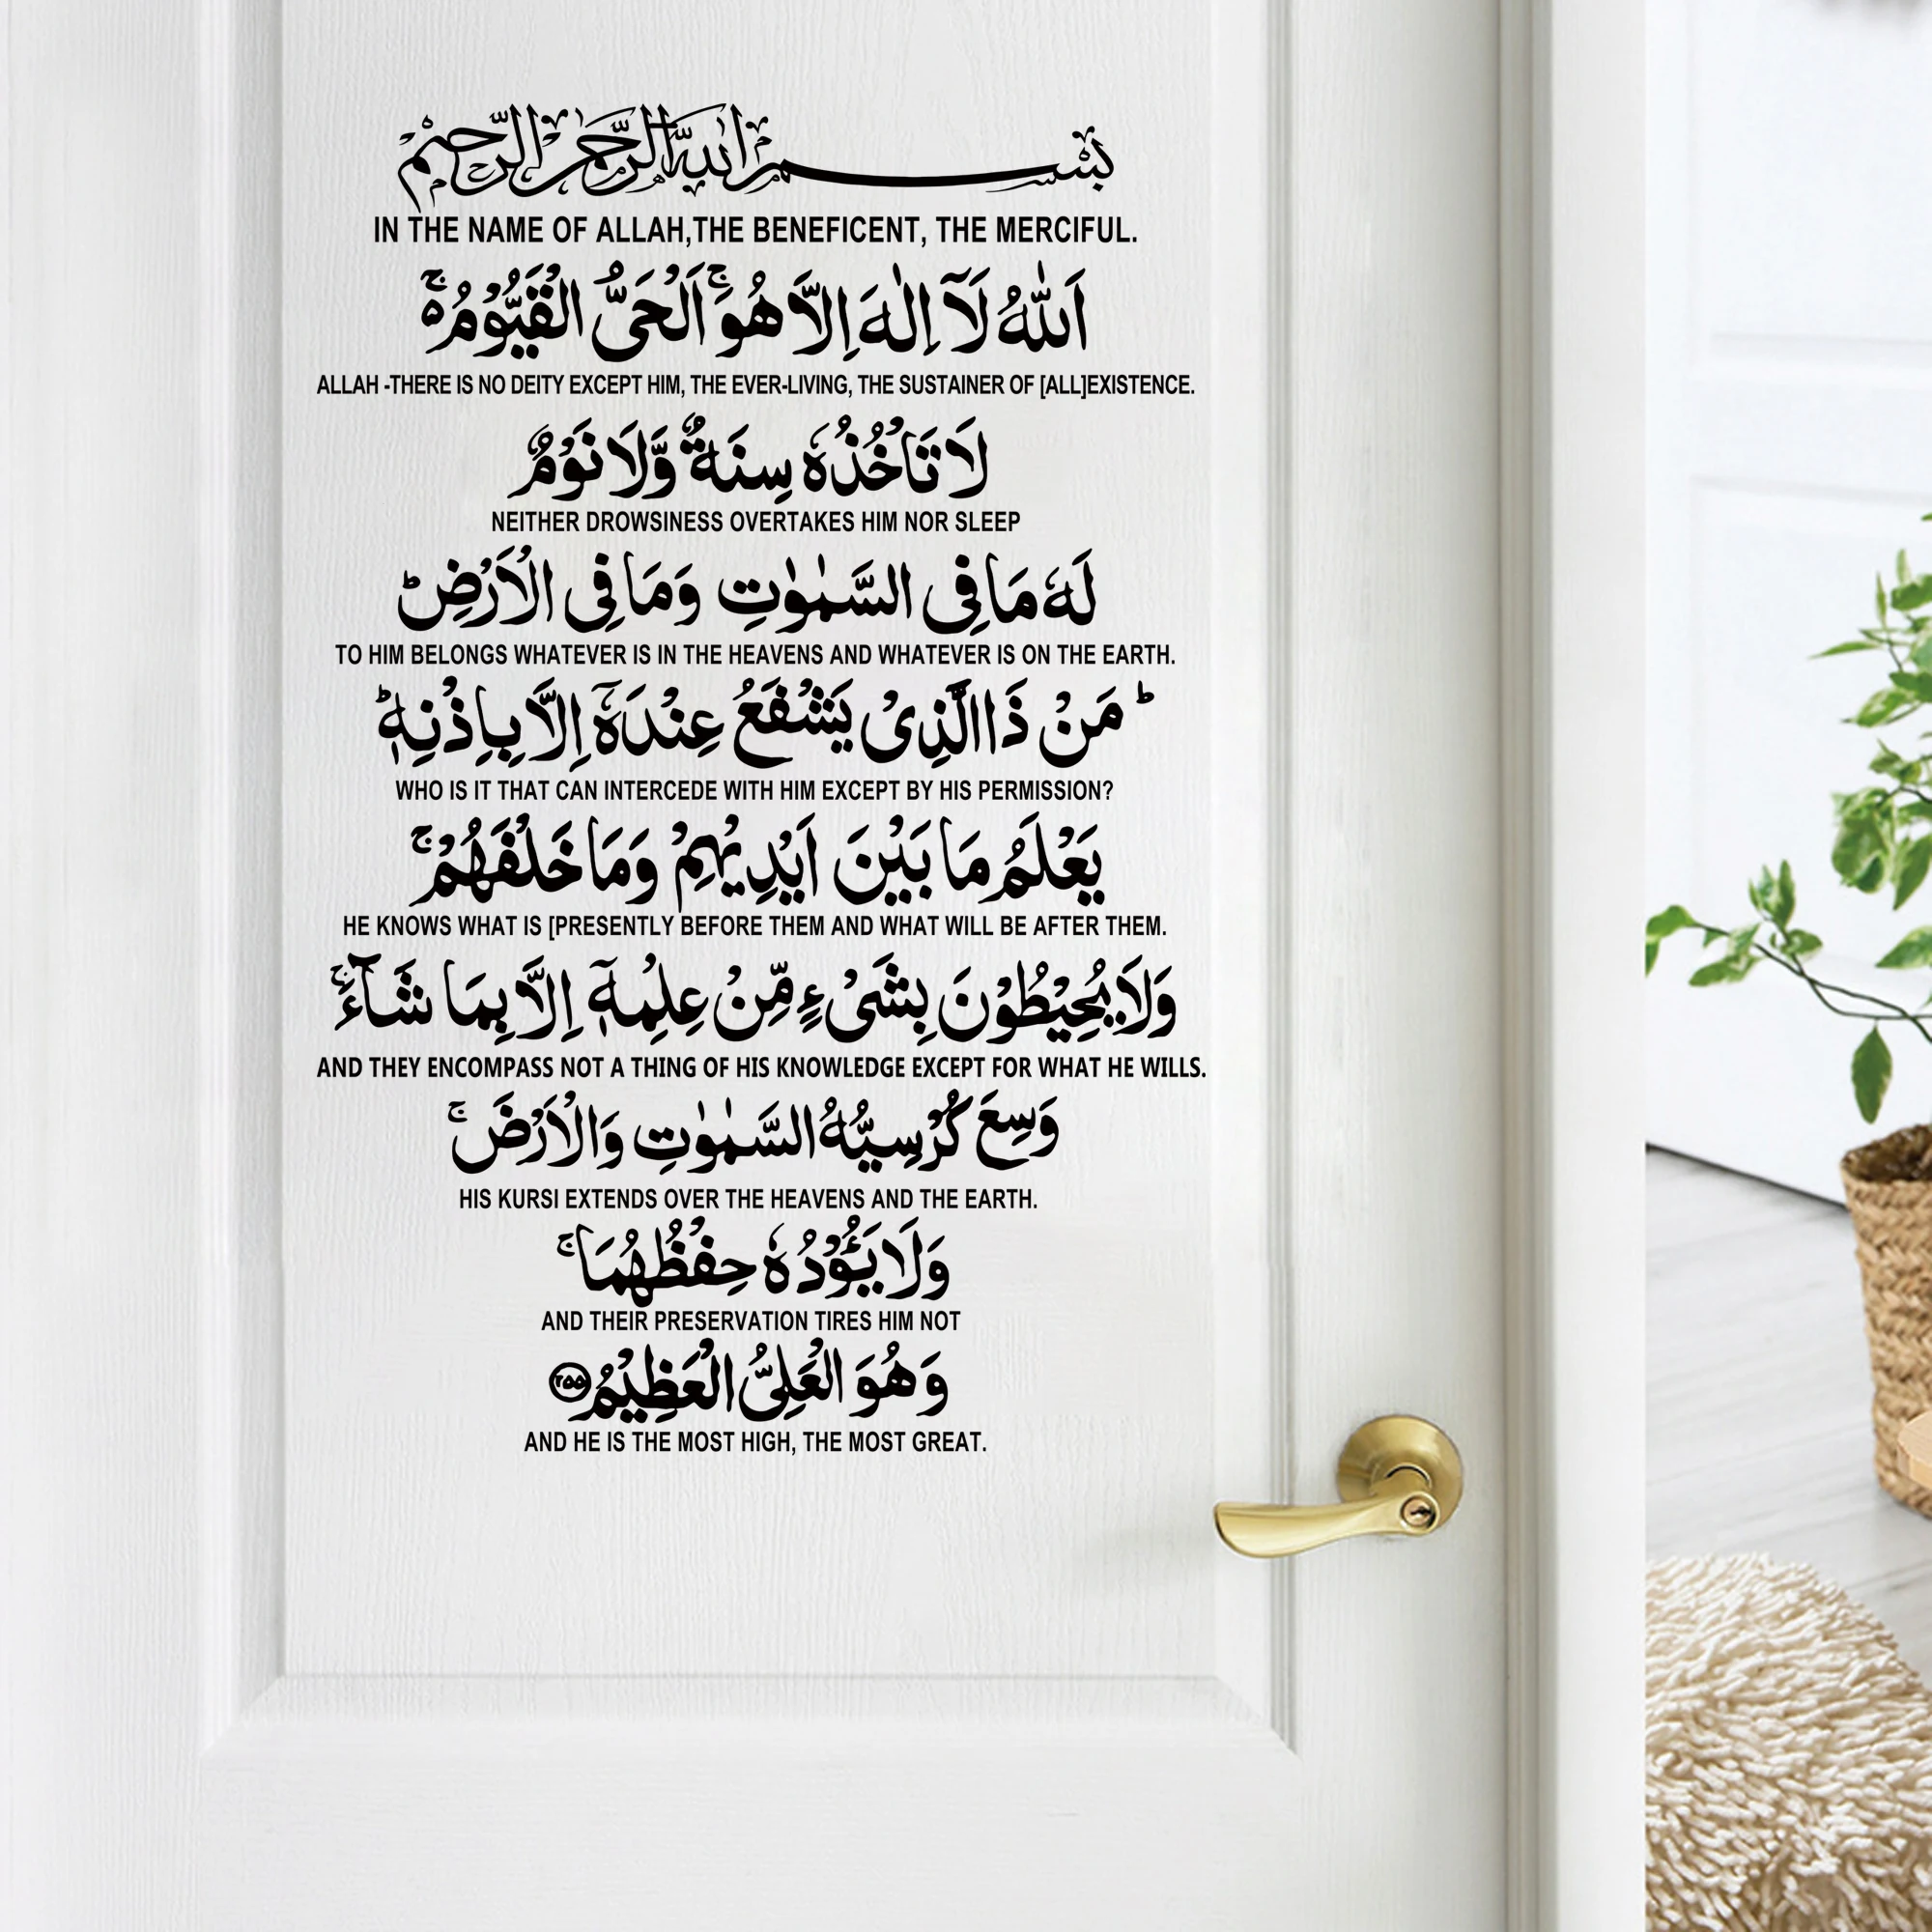 بِسْمِ اللهِ الرَّحْمٰنِ الرَّحِيْمِ
IN THE NAME OF ALLAH,THE BENEFICENT, THE MERCIFUL.
اَللّٰهُ لَآ اِلٰهَ اِلَّا هُوَۚ اَلْحَىُّ الْقَيُّوْمُ ەۚ
ALLAH -THERE IS NO DEITY EXCEPT HIM, THE EVER-LIVING, THE SUSTAINER OF [ALL]EXISTENCE.
لَا تَاْخُذُهٗ سِنَةٌ وَّلَا نَوْمٌ
NEITHER DROWSINESS OVERTAKES HIM NOR SLEEP
لَهٗ مَا فِى السَّمٰوٰتِ وَمَا فِى الْاَرْضِؕ
TO HIM BELONGS WHATEVER IS IN THE HEAVENS AND WHATEVER IS ON THE EARTH.
ؕ مَنْ ذَا الَّذِىْ يَشْفَعُ عِنْدَهٗٓ اِلَّا بِاِذْنِهٖؕ
WHO IS IT THAT CAN INTERCEDE WITH HIM EXCEPT BY HIS PERMISSION?
يَعْلَمُ مَا بَيْنَ اَيْدِيْهِمْ وَمَا خَلْفَهُمْۚ
HE KNOWS WHAT IS [PRESENTLY BEFORE THEM AND WHAT WILL BE AFTER THEM.
وَلَا يُحِيْطُوْنَ بِشَىْءٍ مِّنْ عِلْمِهٖٓ اِلَّا بِمَا شَآءَۚ
AND THEY ENCOMPASS NOT A THING OF HIS KNOWLEDGE EXCEPT FOR WHAT HE WILLS.
وَسِعَ كُرْسِيُّهُ السَّمٰوٰتِ وَالْاَرْضَۚ
HIS KURSI EXTENDS OVER THE HEAVENS AND THE EARTH.
وَلَا يَـُٔوْدُهٗ حِفْظُهُمَاۚ
AND THEIR PRESERVATION TIRES HIM NOT
وَهُوَ الْعَلِىُّ الْعَظِيْمُ ۲۵۵
AND HE IS THE MOST HIGH, THE MOST GREAT.